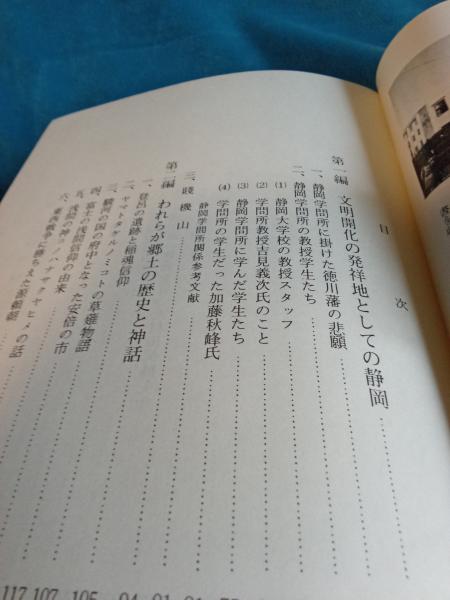 目次
第一編 文明開化の発祥地としての静岡
一、静岡学問所に掛けた徳川藩の悲願
二、静岡学問所の教授学生たち
(1) 静岡大学校の教授スタッフ
(2) 学問所教授吉見義次氏のこと
(3) 静岡学問所に学んだ学生たち
(4) 学問所の学生だった加藤秋峰氏
静岡学問所関係参考文献
三、賤機山
第二編 われらが郷土の歴史と神話
一、登呂の遺跡と稲魂信仰
二、ヤマトタケルノミコトの草薙物語
三、駿河の国の府中となった安倍の市
四、富士の浅間信仰の由来
五、浅間の神コノハナサクヤヒメの話
六、東西戦争に勝をおさえた源頼朝
117 107 105